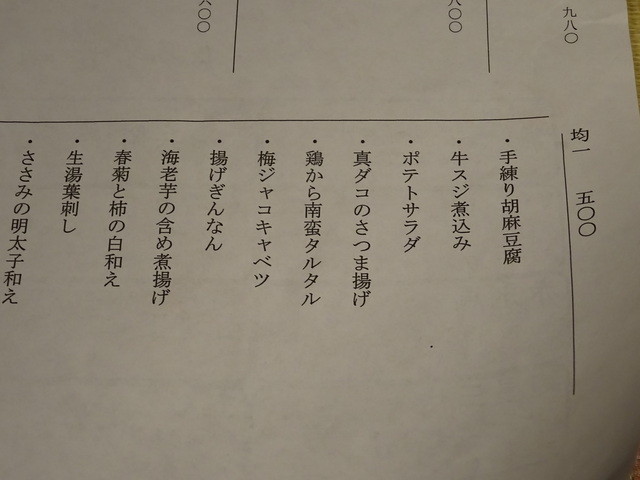 九八〇
八〇〇
〇〇
均一 五〇〇
・手練り胡麻豆腐
・牛スジ煮込み
・ポテトサラダ
・真ダコのさつま揚げ
・鶏から南蛮タルタル
・梅ジャコキャベツ
・揚げぎんなん
・海老芋の含め煮揚げ
・春菊と柿の白和え
・生湯葉刺し
・ささみの明太子和え